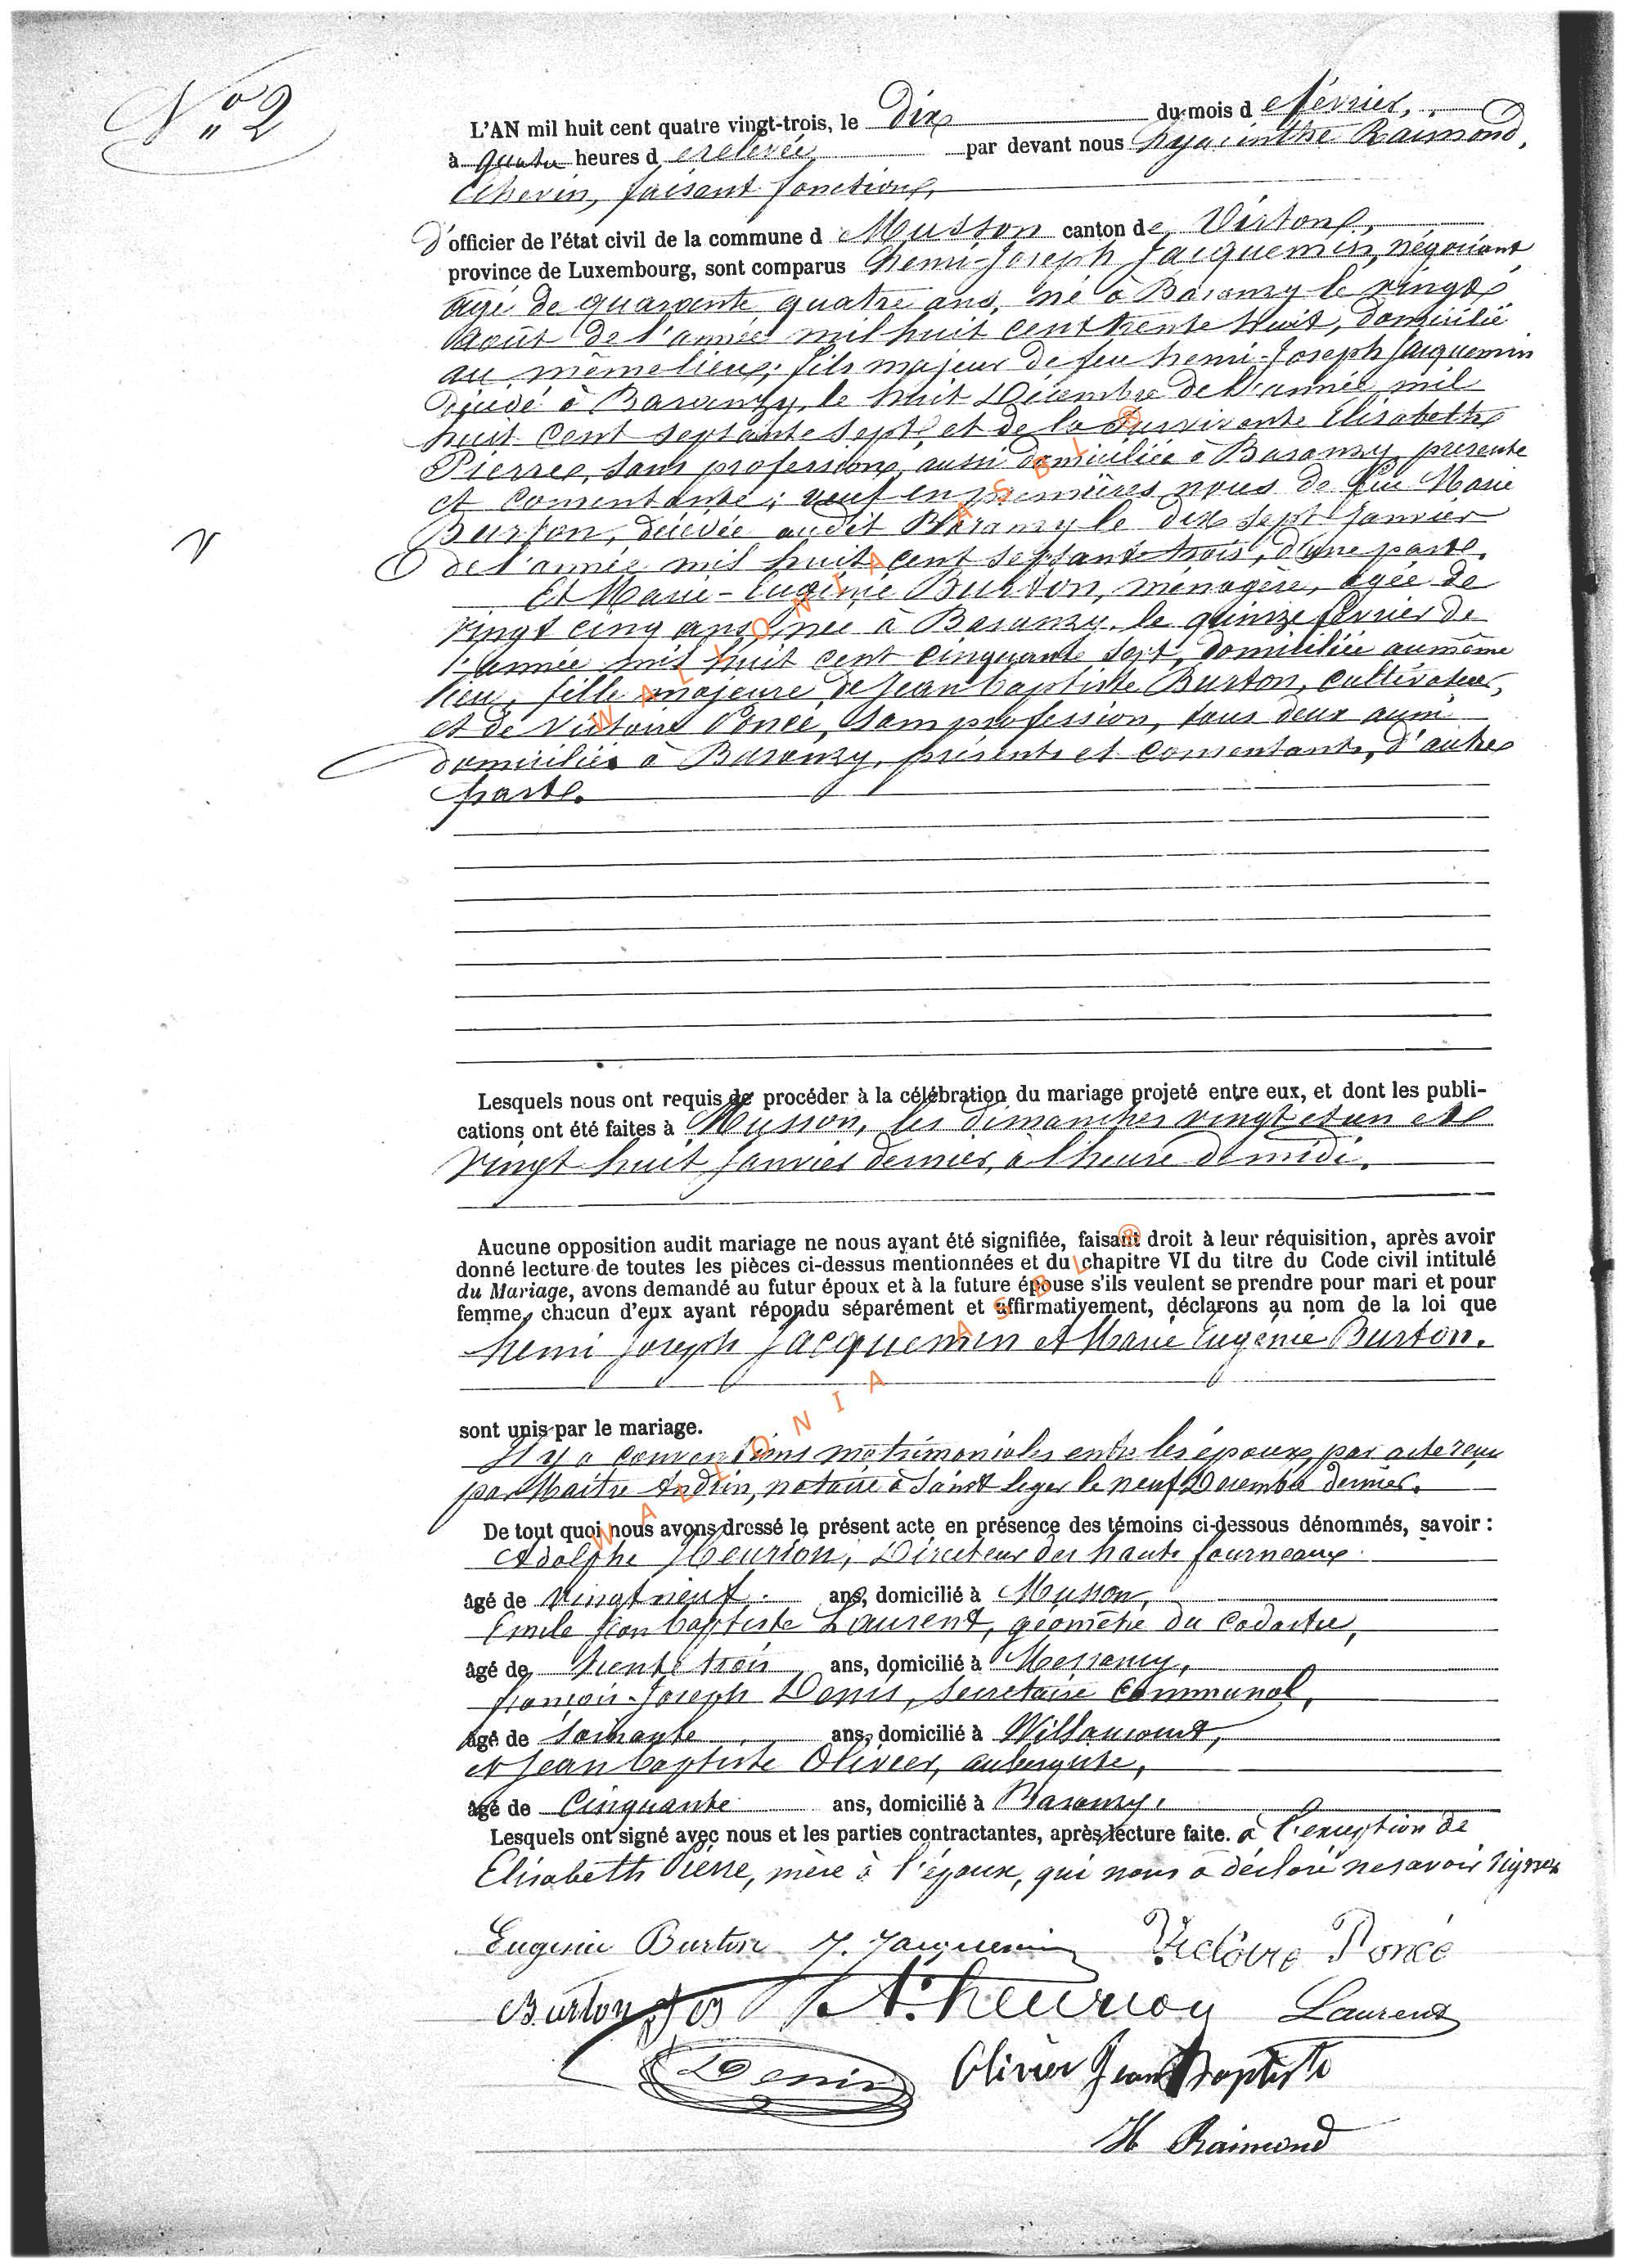 N° 2
L'AN mil huit cent quatre vingt-trois, le Dix du mois de février,
à quatre heures de relevée par devant nous hyacinthe Raimond,
échevin, faisant fonctions,
d'officier de l'état civil de la commune d Musson canton de Virton,
province de Luxembourg, sont comparus henri-Joseph Jacquemin, négociant,
âgé de quarante quatre ans, né à Baranzy le vingt
août de l'année mil huit cent trente huit, domicilié
au même lieu; fils majeur de feu henri-Joseph Jacquemin
décédé à Baranzy, le huit Décembre de l'année mil
huit cent septante sept, et de la survivante Elisabeth
Pierre, sans profession, aussi domiciliée à Baranzy, présente
et consentante; veuf en premières noces de feue Marie
Burton, décédée audit Baranzy le dix sept Janvier
de l'année mil huit cent septante trois, d'une part.
Et Marie-Eugénie Burton, ménagère, âgée de
vingt cinq ans, née à Baranzy le quinze février de
l'année mil huit cent cinquante sept, domiciliée au même
lieu, fille majeure de Jean baptiste Burton, cultivateur,
et de Victoire Poncé, sans profession, tous deux aussi
domiciliés à Baranzy, présents et consentants, d'autre
part.
Lesquels nous ont requis de procéder à la célébration du mariage projeté entre eux, et dont les publi-
cations ont été faites à Musson, les dimanches vingt et un et
vingt huit Janvier dernier, à l'heure de midi.
Aucune opposition audit mariage ne nous ayant été signifiée, faisant droit à leur réquisition, après avoir
donné lecture de toutes les pièces ci-dessus mentionnées et du chapitre VI du titre du Code civil intitulé
du Mariage, avons demandé au futur époux et à la future épouse s'ils veulent se prendre pour mari et pour
femme, chacun d'eux ayant répondu séparément et affirmativement, déclarons au nom de la loi que
henri Joseph Jacquemin et Marie Eugénie Burton.
sont unis par le mariage.
Il y a conventions matrimoniales entre les époux, par acte reçu
par Maitre Andrin, notaire à Saint Leger le neuf Décembre dernier.
De tout quoi nous avons dressé le présent acte en présence des témoins ci-dessous dénommés, savoir :
Adolphe Heurion, Directeur des hauts fourneaux
âgé de vingt neuf ans, domicilié à Musson,
Emile Jean baptiste Laurent, géomètre du cadastre,
âgé de trente trois ans, domicilié à Messancy,
françois-Joseph Denis, secrétaire communal,
âgé de soixante ans, domicilié à Willancourt,
et Jean baptiste Olivier, aubergiste,
âgé de Cinquante ans, domicilié à Baranzy.
Lesquels ont signé avec nous et les parties contractantes, après lecture faite. à l'exception de
Elisabeth Pierre, mère à l'époux, qui nous a déclaré ne savoir signer
Eugenie Burton J. Jacquemin Victoire Poncé
Burton A. heurion Laurent
Denis Olivier Jean Baptiste
H Raimond
WALLONIA ASBL ®
WALLONIA ASBL ®